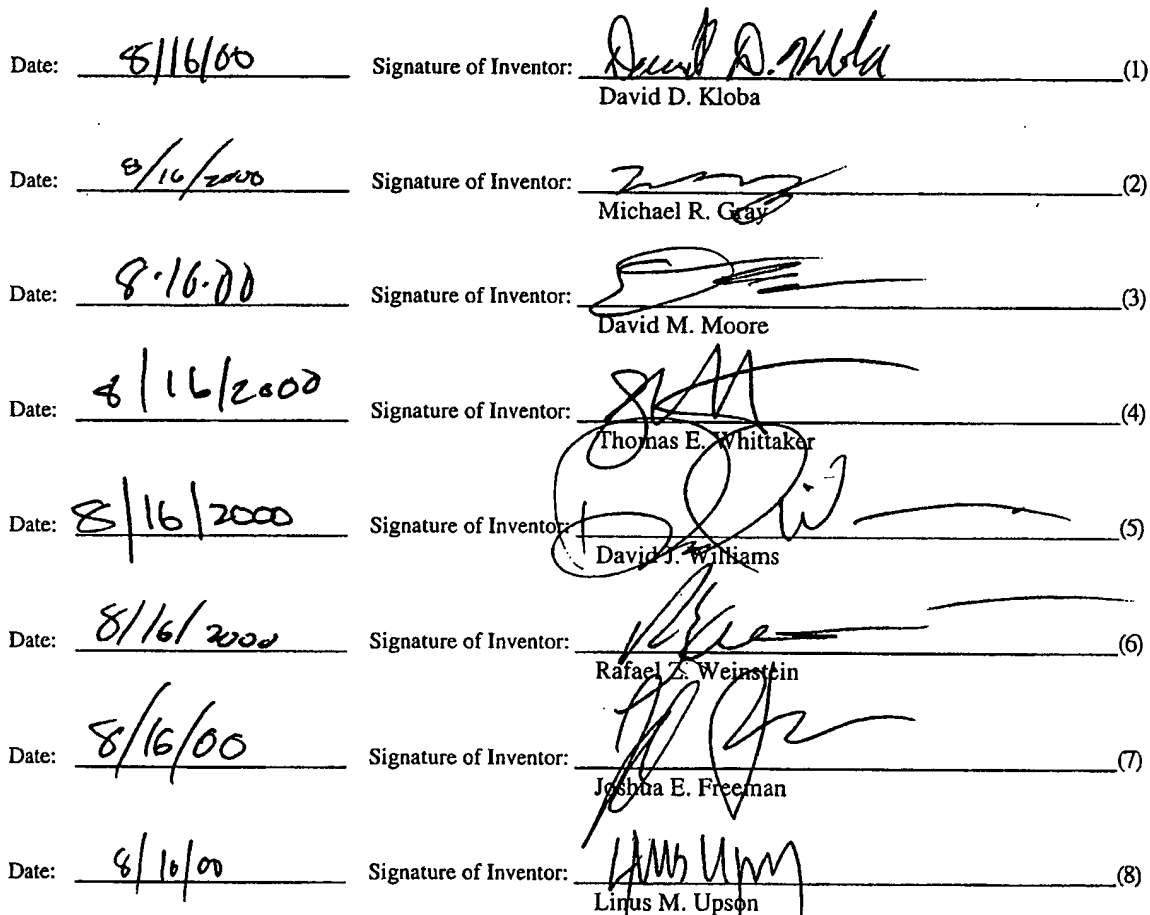 Date: 8/16/00 Signature of Inventor: David D. Kloba (1)
David D. Kloba
Date: 8/16/2000 Signature of Inventor: (2)
Michael R. Gray
Date: 8·16·00 Signature of Inventor: (3)
David M. Moore
Date: 8/16/2000 Signature of Inventor: (4)
Thomas E. Whittaker
Date: 8/16/2000 Signature of Inventor: (5)
David J. Williams
Date: 8/16/2000 Signature of Inventor: (6)
Rafael Z. Weinstein
Date: 8/16/00 Signature of Inventor: (7)
Joshua E. Freeman
Date: 8/16/00 Signature of Inventor: Linus Upson (8)
Linus M. Upson